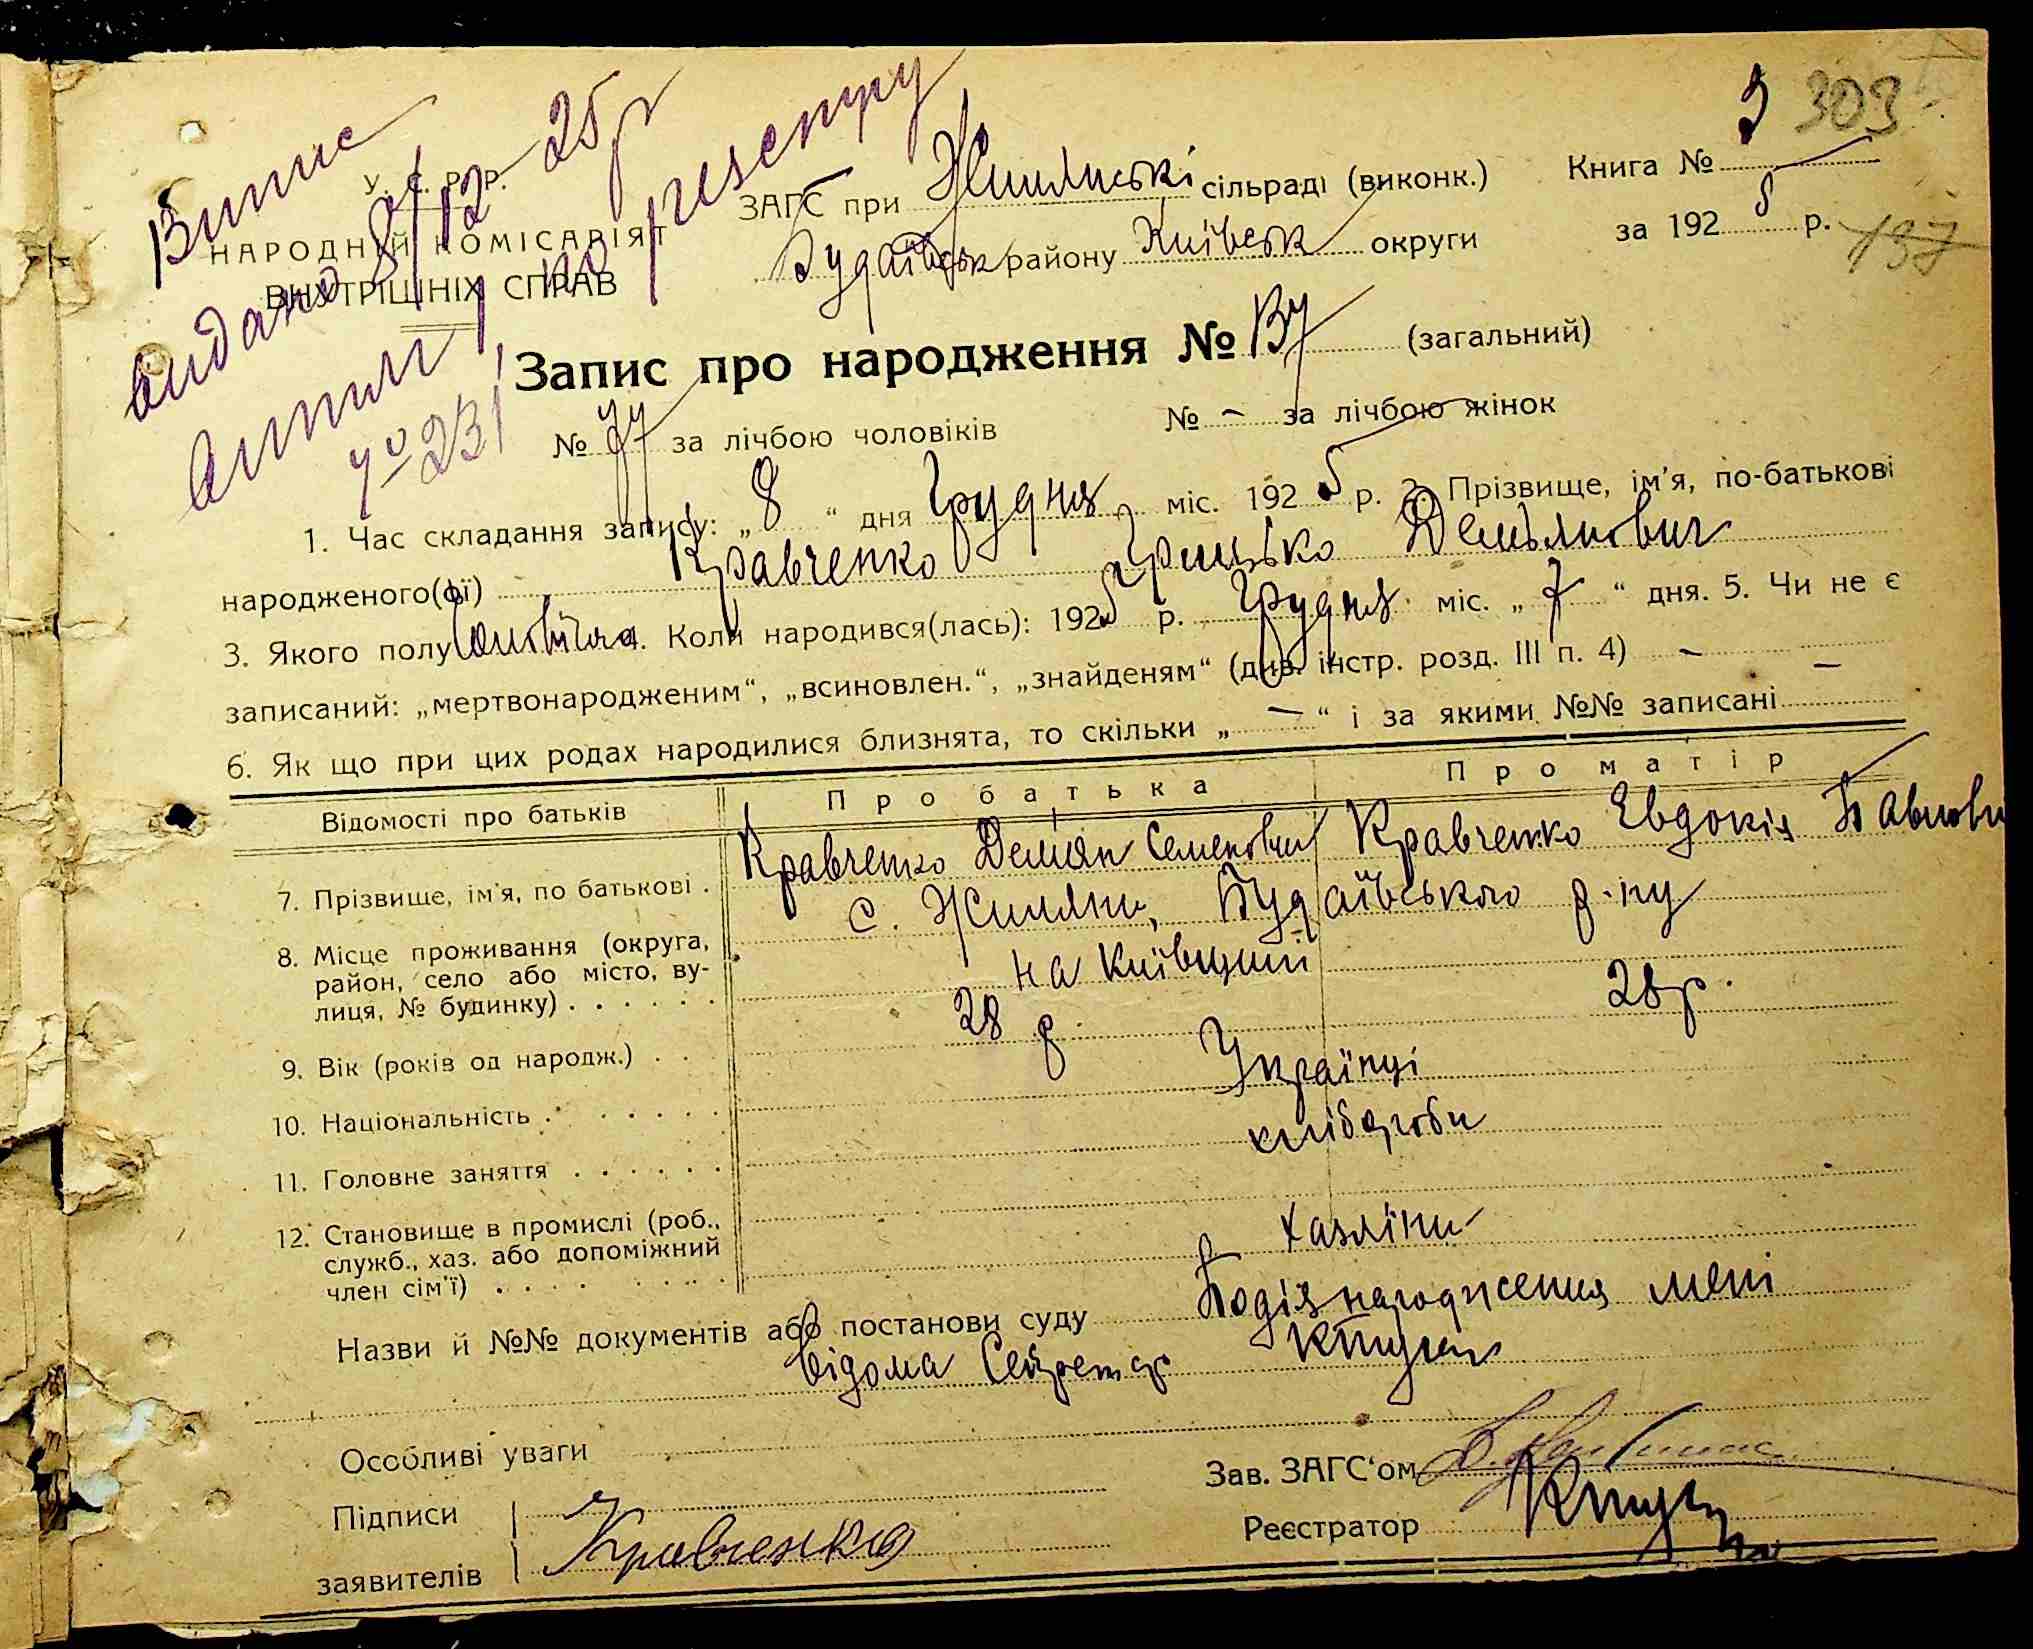 303
Випис
видано 8/12-25 р
У. С. Р. Р.
НАРОДНІЙ КОМІСАРІЯТ
ВНУТРІШНІХ СПРАВ
№ 231
ЗАГС при Жилянські сільраді (виконк.)
Будаївськ району Київськ округи
Книга №
за 1925 р.
137
Запис про народження № (загальний)
№ за лічбою чоловіків № – за лічбою жінок
1. Час складання запису: „8“ дня Грудня міс. 1925 р. 2. Прізвище, ім'я, по-батькові
народженого(ої) Кравченко Грицько Демьянович
3. Якого полу 4. Коли народився(лась): 1925 р. Грудня міс. „7“ дня. 5. Чи не є
записаний: „мертвонародженим“, „всиновлен.“, „знайденям“ (див. інстр. розд. III п. 4) –
6. Як що при цих родах народилися близнята, то скільки „–“ і за якими №№ записані –
Відомості про батьків Про батька Про матір
7. Прізвище, ім'я, по батькові . Кравченко Демян Семенович Кравченко Евдокія Павлови
8. Місце проживання (округа, с. Жиляни, Будаївського р-ну
район, село або місто, ву- на Київщині
лиця, № будинку) . . . . . .
9. Вік (років од народж.) . . 28 р. 28 р.
10. Національність . . . . . . Українці
11. Головне заняття . . . . . . хлібороби
12. Становище в промислі (роб.,
служб., хаз. або допоміжний
член сім'ї) . . . . . . . хазяіни
Назви й №№ документів або постанови суду Подія народження мені
відома Секретар
Особливі уваги
Зав. ЗАГС'ом
Підписи
Реєстратор
заявителів Кравченко